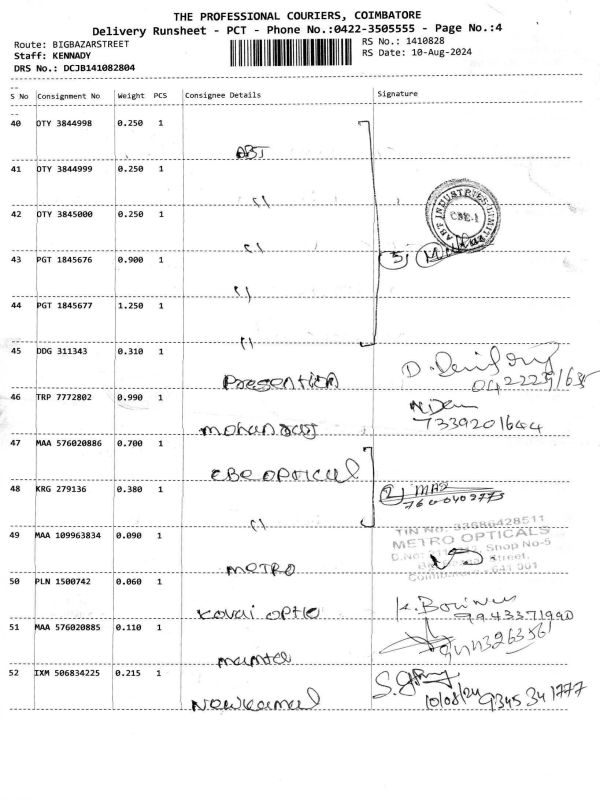 THE PROFESSIONAL COURIERS, COIMBATORE
Delivery Runsheet - PCT - Phone No.:0422-3505555 - Page No.:4
Route: BIGBAZARSTREET
RS No.: 1410828
Staff: KENNADY
RS Date: 10-Aug-2024
DRS No.: DCJB141082804
S No Consignment No Weight PCS Consignee Details Signature
40 OTY 3844998 0.250 1
ABT
41 OTY 3844999 0.250 1
"
42 OTY 3845000 0.250 1
"
ABT INDUSTRIES LIMITED
CBE-1
43 PGT 1845676 0.900 1
5
"
44 PGT 1845677 1.250 1
"
45 DDG 311343 0.310 1
Presention
04222391635
46 TRP 7772802 0.990 1
mohanraj
7339201644
47 MAA 576020886 0.700 1
CBE OPTICAL
48 KRG 279136 0.380 1
2
7600402775
"
49 MAA 109963834 0.090 1
TIN No. 33686428511
METRO OPTICALS
Shop No-5
Street,
641 001
METRO
50 PLN 1500742 0.060 1
kovai optic
9943371990
51 MAA 576020885 0.110 1
mamta
52 IXM 506834225 0.215 1
Newkamal
10/08/24 9345 341777